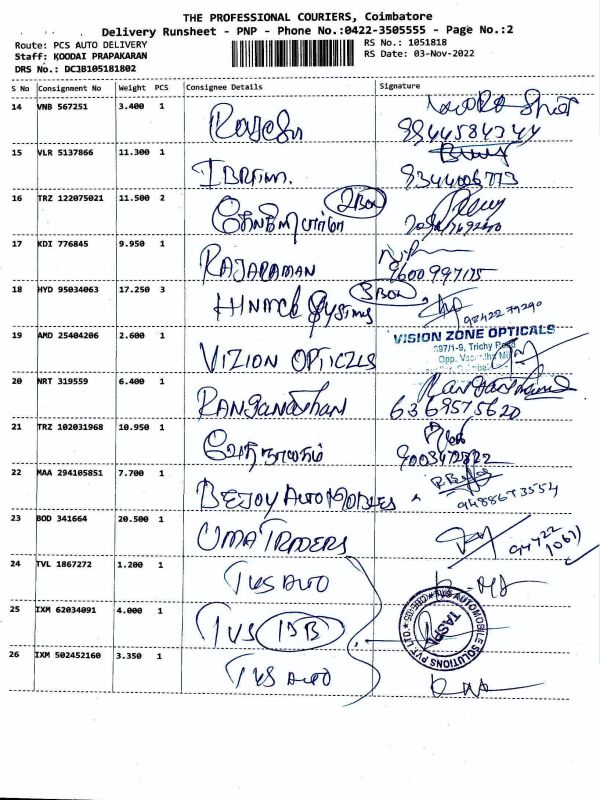 THE PROFESSIONAL COURIERS, Coimbatore
Delivery Runsheet - PNP - Phone No.:0422-3505555 - Page No.:2
Route: PCS AUTO DELIVERY
RS No.: 1051818
Staff: KOODAI PRAPAKARAN
RS Date: 03-Nov-2022
DRS No.: DCJB105181802
S No Consignment No Weight PCS Consignee Details Signature
14 VNB 567251 3.400 1 Rajesh
9944584344
15 VLR 5137866 11.300 1 IBRFIM.
8344006773
16 TRZ 122075021 11.500 2 2 BOX
17 KDI 776845 9.950 1 RAJARAMAN
9600997175
18 HYD 95034063 17.250 3 Systems 3 BOX
9842279290
19 AMD 25404206 2.600 1 VIZION OPTICZLS
VISION ZONE OPTICALS
697/1-9, Trichy Road
Opp.
20 NRT 319559 6.400 1 RANganathan
Ranganathan
6369575620
21 TRZ 102031968 10.950 1 வேதநாயகம்
9003472822
22 MAA 294105851 7.700 1 BEJOY AUTOMOBLES
9488673554
23 BOD 341664 20.500 1 UMA TRADERS
94422
24 TVL 1867272 1.200 1 TVS AUTO
25 IXM 62034091 4.000 1 TVS IDB
AUTOMOBILE SOLUTIONS PVT. LTD.
TASPL
26 IXM 502452160 3.350 1 TVS AUTO